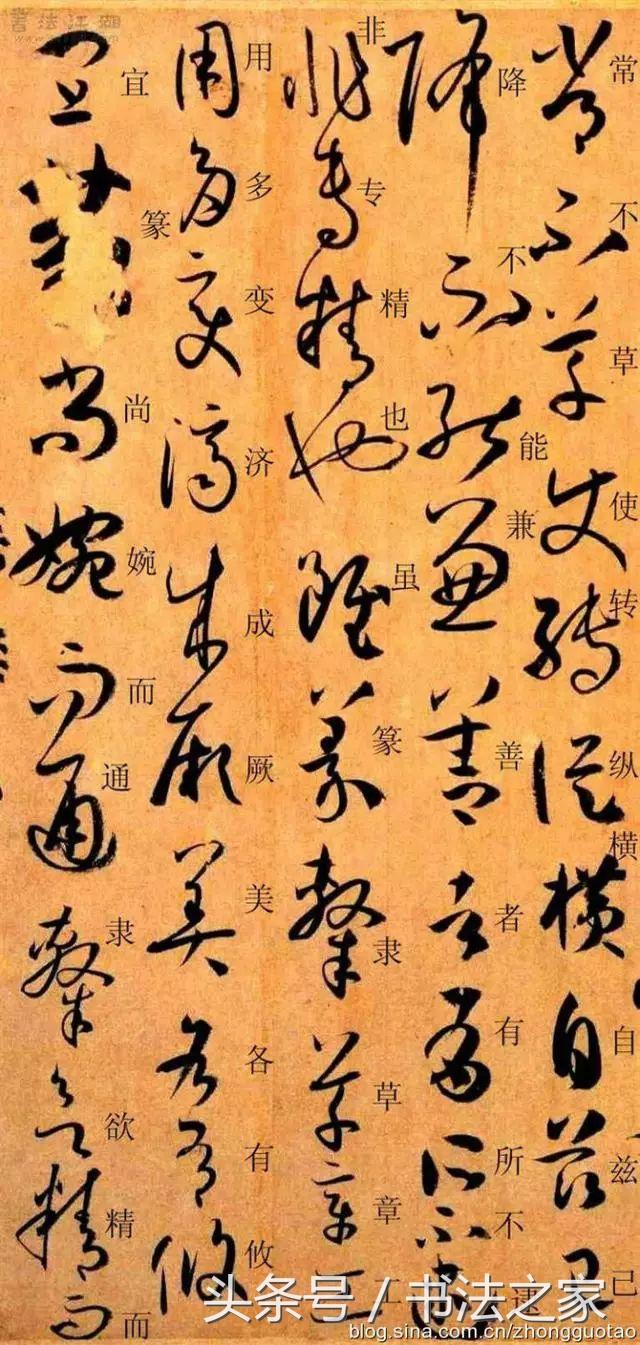 常不草使转纵横自兹己
降不能兼善者有所不逮
非专精也虽篆隶草章工
用多变济成厥美各有攸
宜篆尚婉而通隶欲精而
书法江湖
头条号 / 书法之家
blog.sina.com.cn/zhongguotao